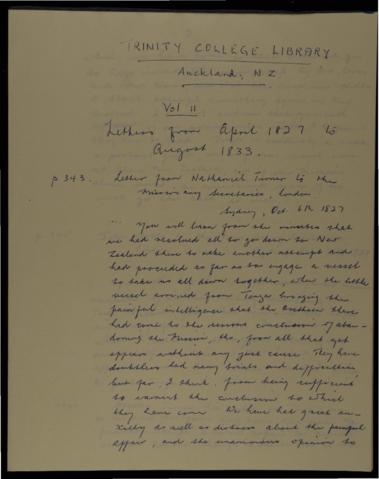 TRINITY COLLEGE LIBRARY
Auckland, N Z
Vol II
Letters from April 1827 to
August 1833.
p 343. Letter from Nathaniel Turner to the
Missionary Secretaries, London
Sydney, Oct. 6th 1827
"You will learn from the minutes that
we had resolved all to go down to New
Zealand there to make another attempt and
had proceeded so far as to engage a vessel
to take us all down together, when the little
vessel arrived from Tonga bringing the
painful intelligence that the Brethren there
had come to the serious conclusion of aban-
doning the Mission, tho, from all that yet
appears without any just cause. They have
doubtless had many trials and difficulties
but far, I think, from being sufficient
to warrant the conclusion to which
they have come. We have had great an-
xiety as well as distress about the painful
affair, and the unanimous opinion is